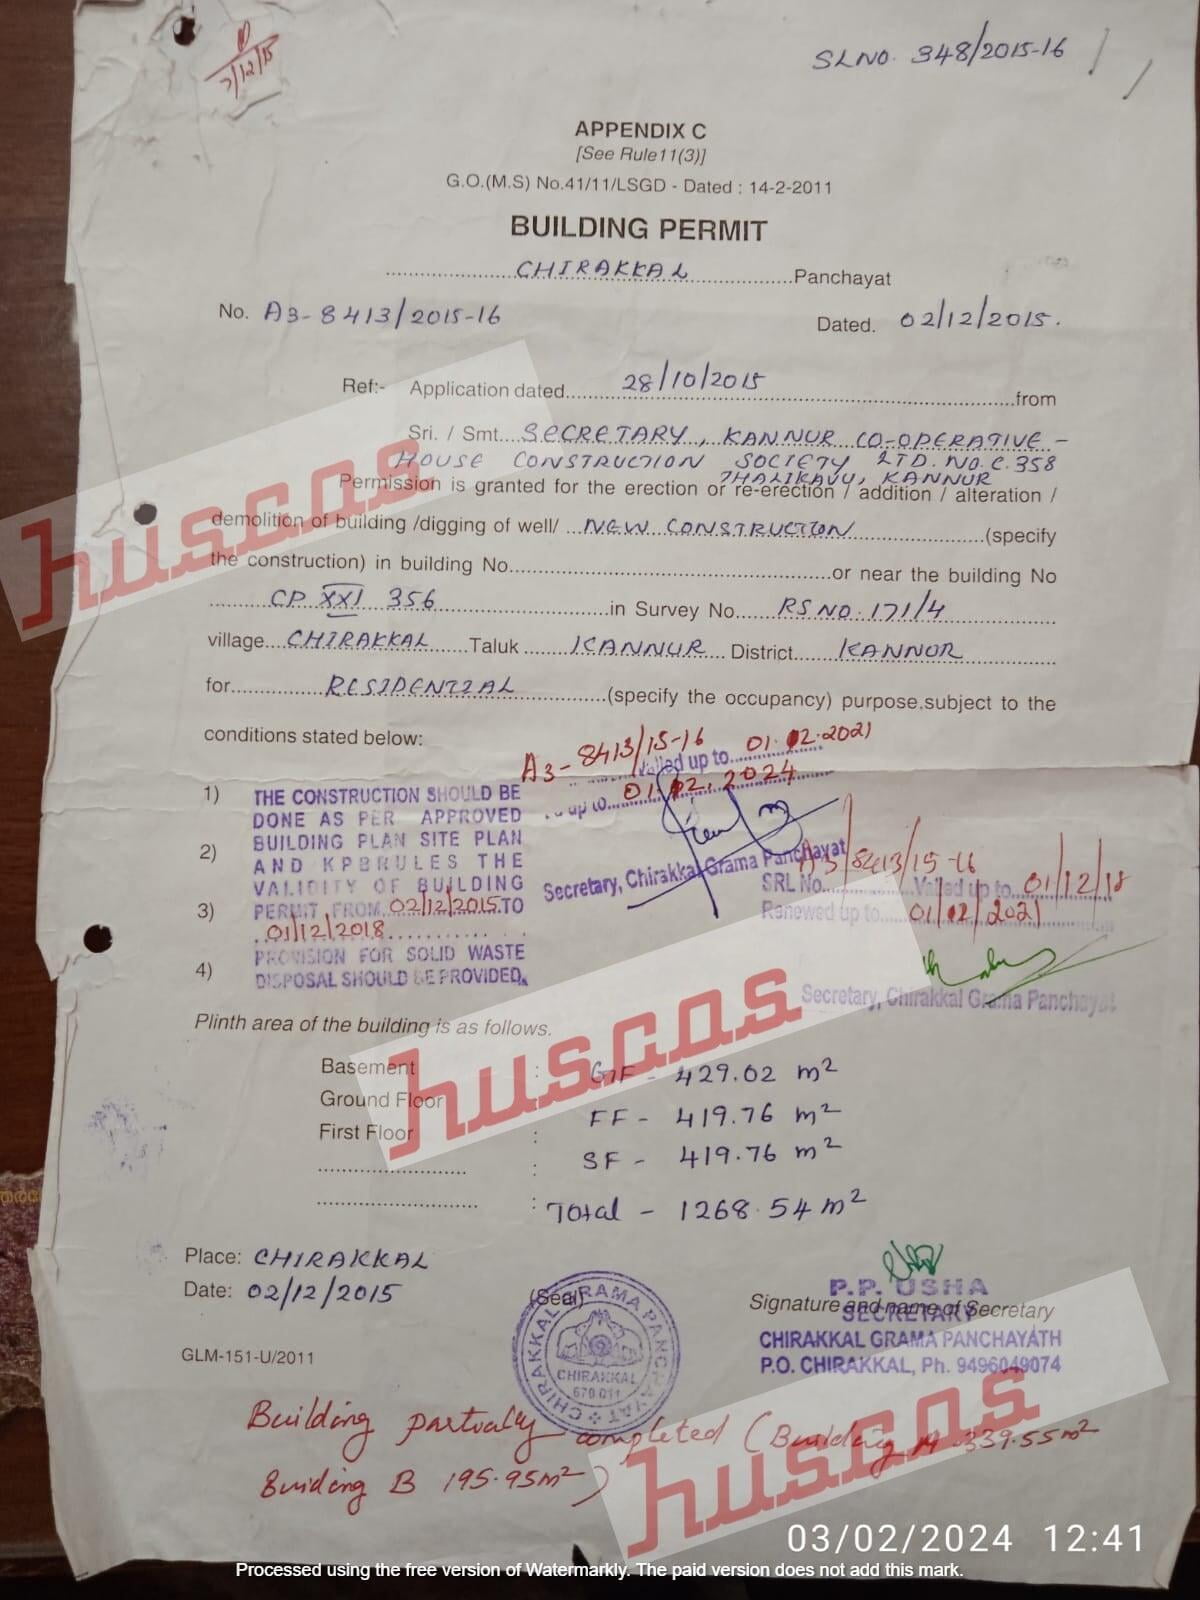 7/12/15
SLNO. 348/2015-16
APPENDIX C
[See Rule11(3)]
G.O.(M.S) No.41/11/LSGD - Dated : 14-2-2011
BUILDING PERMIT
CHIRAKKAL Panchayat
No. A3-8413/2015-16
Dated. 02/12/2015.
Ref:- Application dated 28/10/2015 from
Sri. / Smt. SECRETARY, KANNUR CO-OPERATIVE -
HOUSE CONSTRUCTION SOCIETY LTD. NO. C. 358
THALIKAVU, KANNUR
Permission is granted for the erection or re-erection / addition / alteration /
demolition of building /digging of well/ NEW CONSTRUCTION (specify
the construction) in building No. or near the building No
CP XXI 356 in Survey No. RS NO. 171/4
village CHIRAKKAL Taluk KANNUR District KANNUR
for RESIDENTIAL (specify the occupancy) purpose.subject to the
conditions stated below:
A3-8413/15-16 Valied up to 01.12.2021
up to 01.12.2024
Secretary, Chirakkal Grama Panchayat
1)
2)
3)
4)
THE CONSTRUCTION SHOULD BE
DONE AS PER APPROVED
BUILDING PLAN SITE PLAN
AND KPBRULES THE
VALIDITY OF BUILDING
PERMIT FROM 02/12/2015 TO
01/12/2018
PROVISION FOR SOLID WASTE
DISPOSAL SHOULD BE PROVIDED.
A3/8413/15-16
SRL No. Valied up to 01/12/18
Renewed up to 01/12/2021
Secretary, Chirakkal Grama Panchayat
Plinth area of the building is as follows.
Basement : GF - 429.02 m²
Ground Floor
FF - 419.76 m²
First Floor :
: SF - 419.76 m²
: Total - 1268.54 m²
Place: CHIRAKKAL
Date: 02/12/2015
(Seal)
CHIRAKKAL GRAMA PANCHAYAT
CHIRAKKAL
670 011
P.P. USHA
Signature and name of Secretary
SECRETARY
CHIRAKKAL GRAMA PANCHAYATH
P.O. CHIRAKKAL, Ph. 9496049074
GLM-151-U/2011
Building partially completed (Building A 339.55m²
Building B 195.95m²)
huscos
huscos
huscos
03/02/2024 12:41
Processed using the free version of Watermarkly. The paid version does not add this mark.